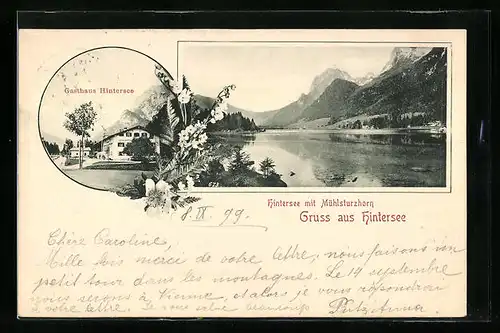 Gasthaus Hintersee
Hintersee mit Mühlsturzhorn
Gruss aus Hintersee
8. IX. 99.
Chère Caroline,
Mille fois merci de votre lettre, nous faisons un
petit tour dans les montagnes. Le 14 septembre
nous serons à Vienne, et alors je vous répondrai
à votre lettre. Je vous salue beaucoup